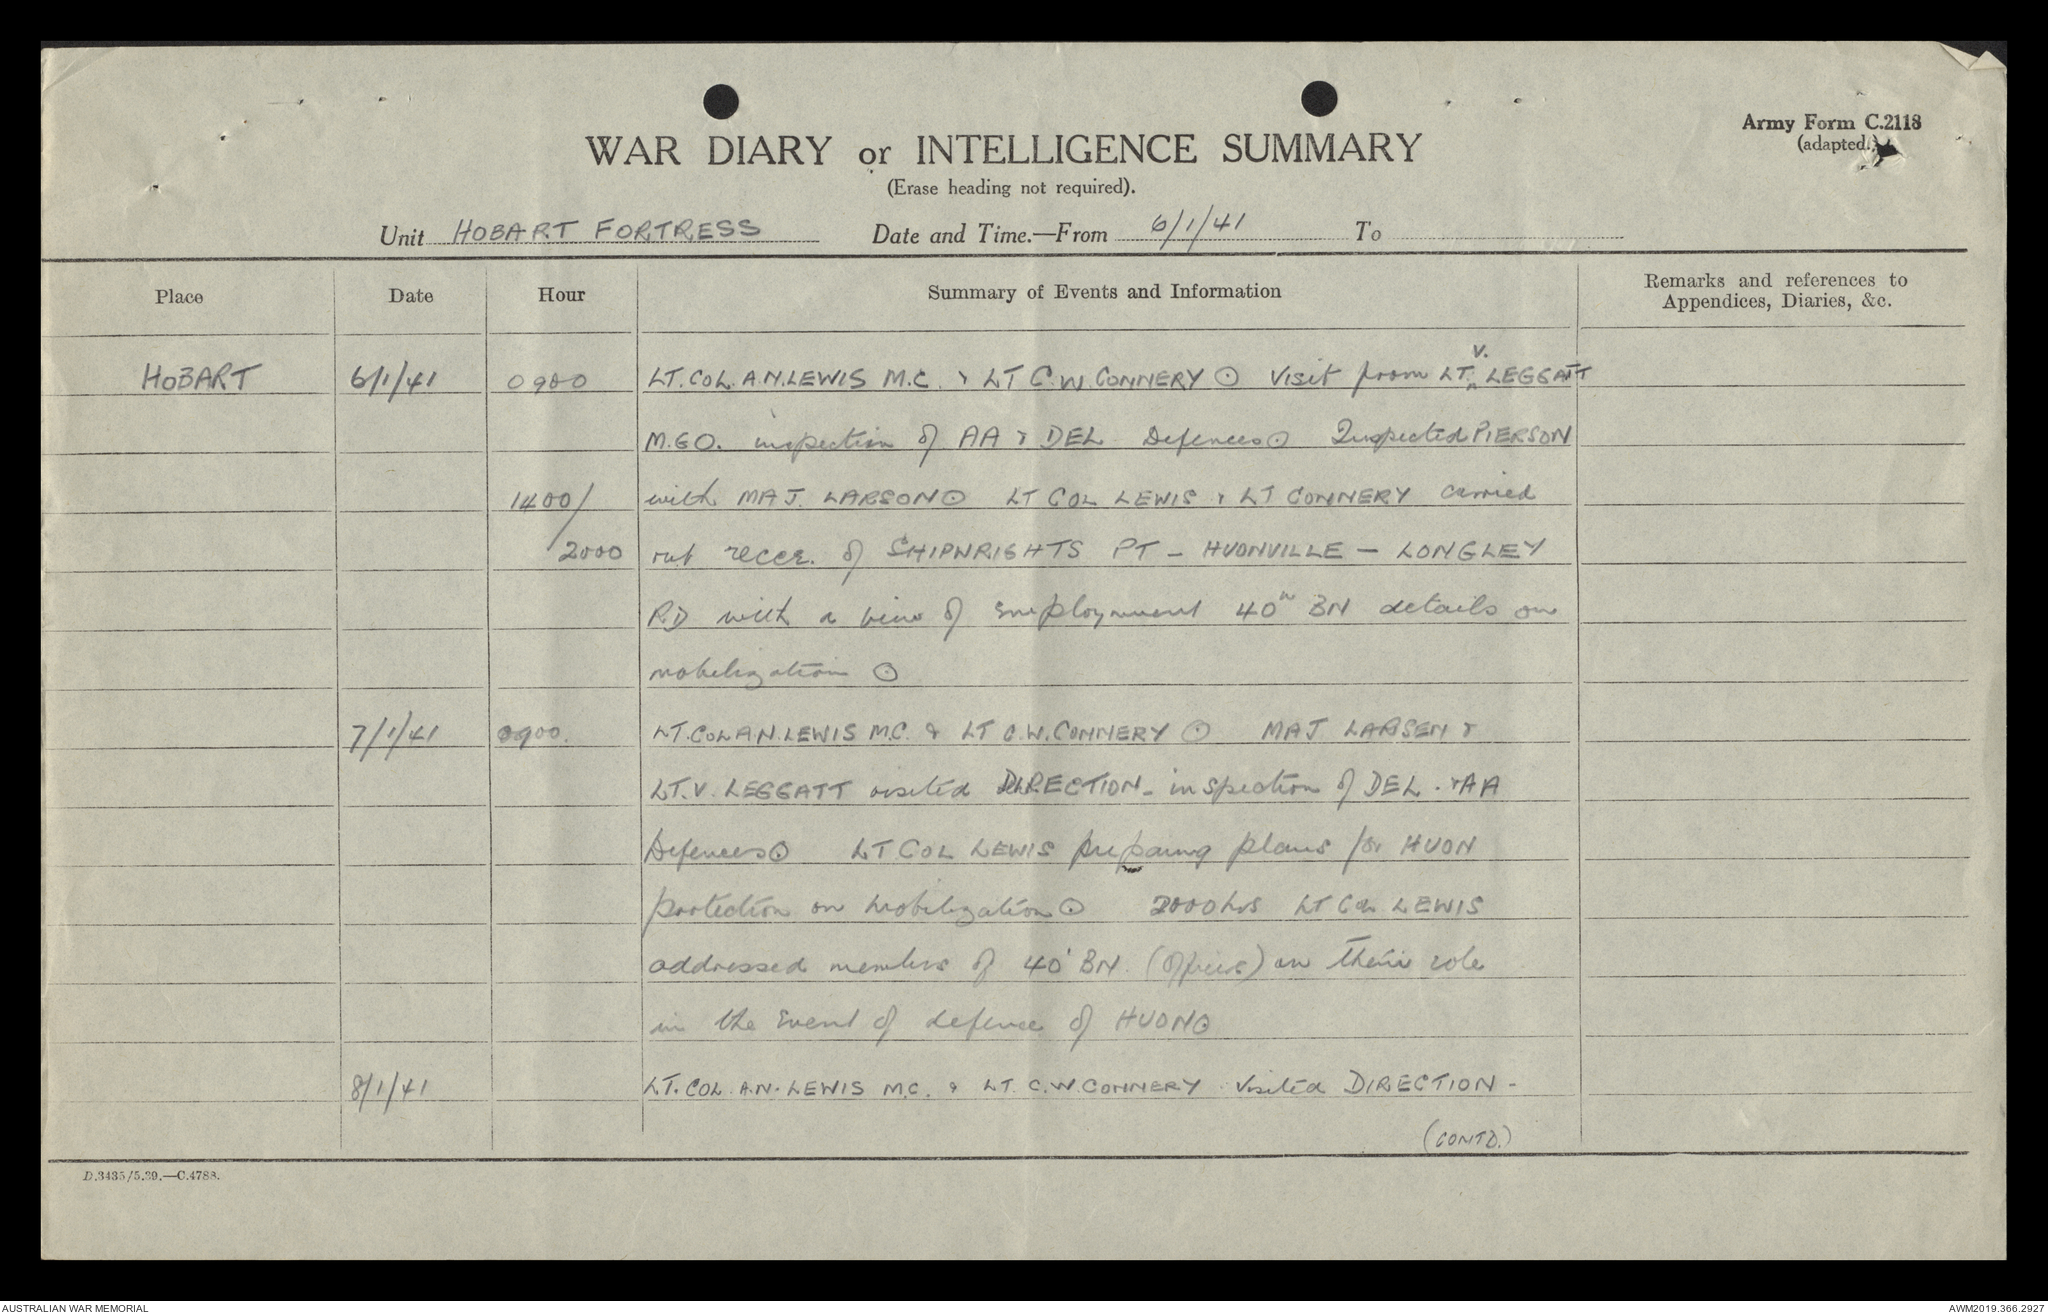 Army Form C.2118
(adapted.)
WAR DIARY or INTELLIGENCE SUMMARY
(Erase heading not required).
Unit HOBART FORTRESS Date and Time.—From 6/1/41 To
Place Date Hour Summary of Events and Information Remarks and references to
Appendices, Diaries, &c.
HOBART 6/1/41 0900 LT. COL. A.N. LEWIS M.C. & LT C.W. CONNERY ⊙ Visit from LT V. LEGGATT
M.G.O. inspection of AA & DEL Defences ⊙ Inspected PIERSON
1400/ with MAJ. LARSON ⊙ LT COL LEWIS & LT CONNERY carried
2000 out recce. of SHIPWRIGHTS PT - HUONVILLE - LONGLEY
RD with a view of employment 40th BN details on
mobilization ⊙
7/1/41 0900. LT. COL A.N. LEWIS M.C. & LT C.W. CONNERY ⊙ MAJ LARSEN &
LT. V. LEGGATT visited DIRECTION - inspection of DEL. & AA
Defences ⊙ LT COL LEWIS preparing plans for HUON
protection on mobilization ⊙ 2000 hrs LT COL LEWIS
addressed members of 40' BN. (Officers) on their role
in the event of defence of HUON ⊙
8/1/41 LT. COL. A.N. LEWIS M.C. & LT. C.W. CONNERY visited DIRECTION -
(CONTD.)
D.3435/5.39.—C.4788.
AUSTRALIAN WAR MEMORIAL AWM2019.366.2927